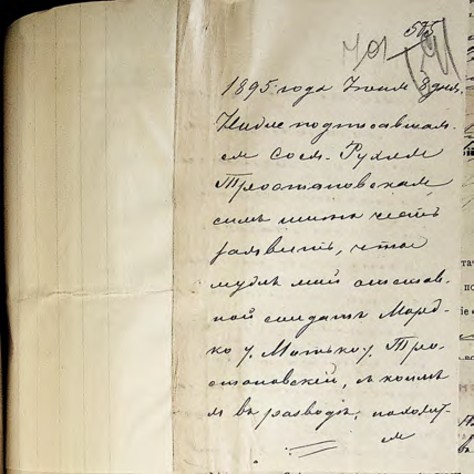 575
1895 года Июля 8 дня,
Ниже подписавшая-
ся Сося-Рухля
Тростановская,
симъ имѣю честь
заявить, что
мужъ мой отстав-
ной солдатъ Мордко
ко У. Мотько У. Тро-
становскій, съ коимъ
я въ разводѣ, находит-
ся